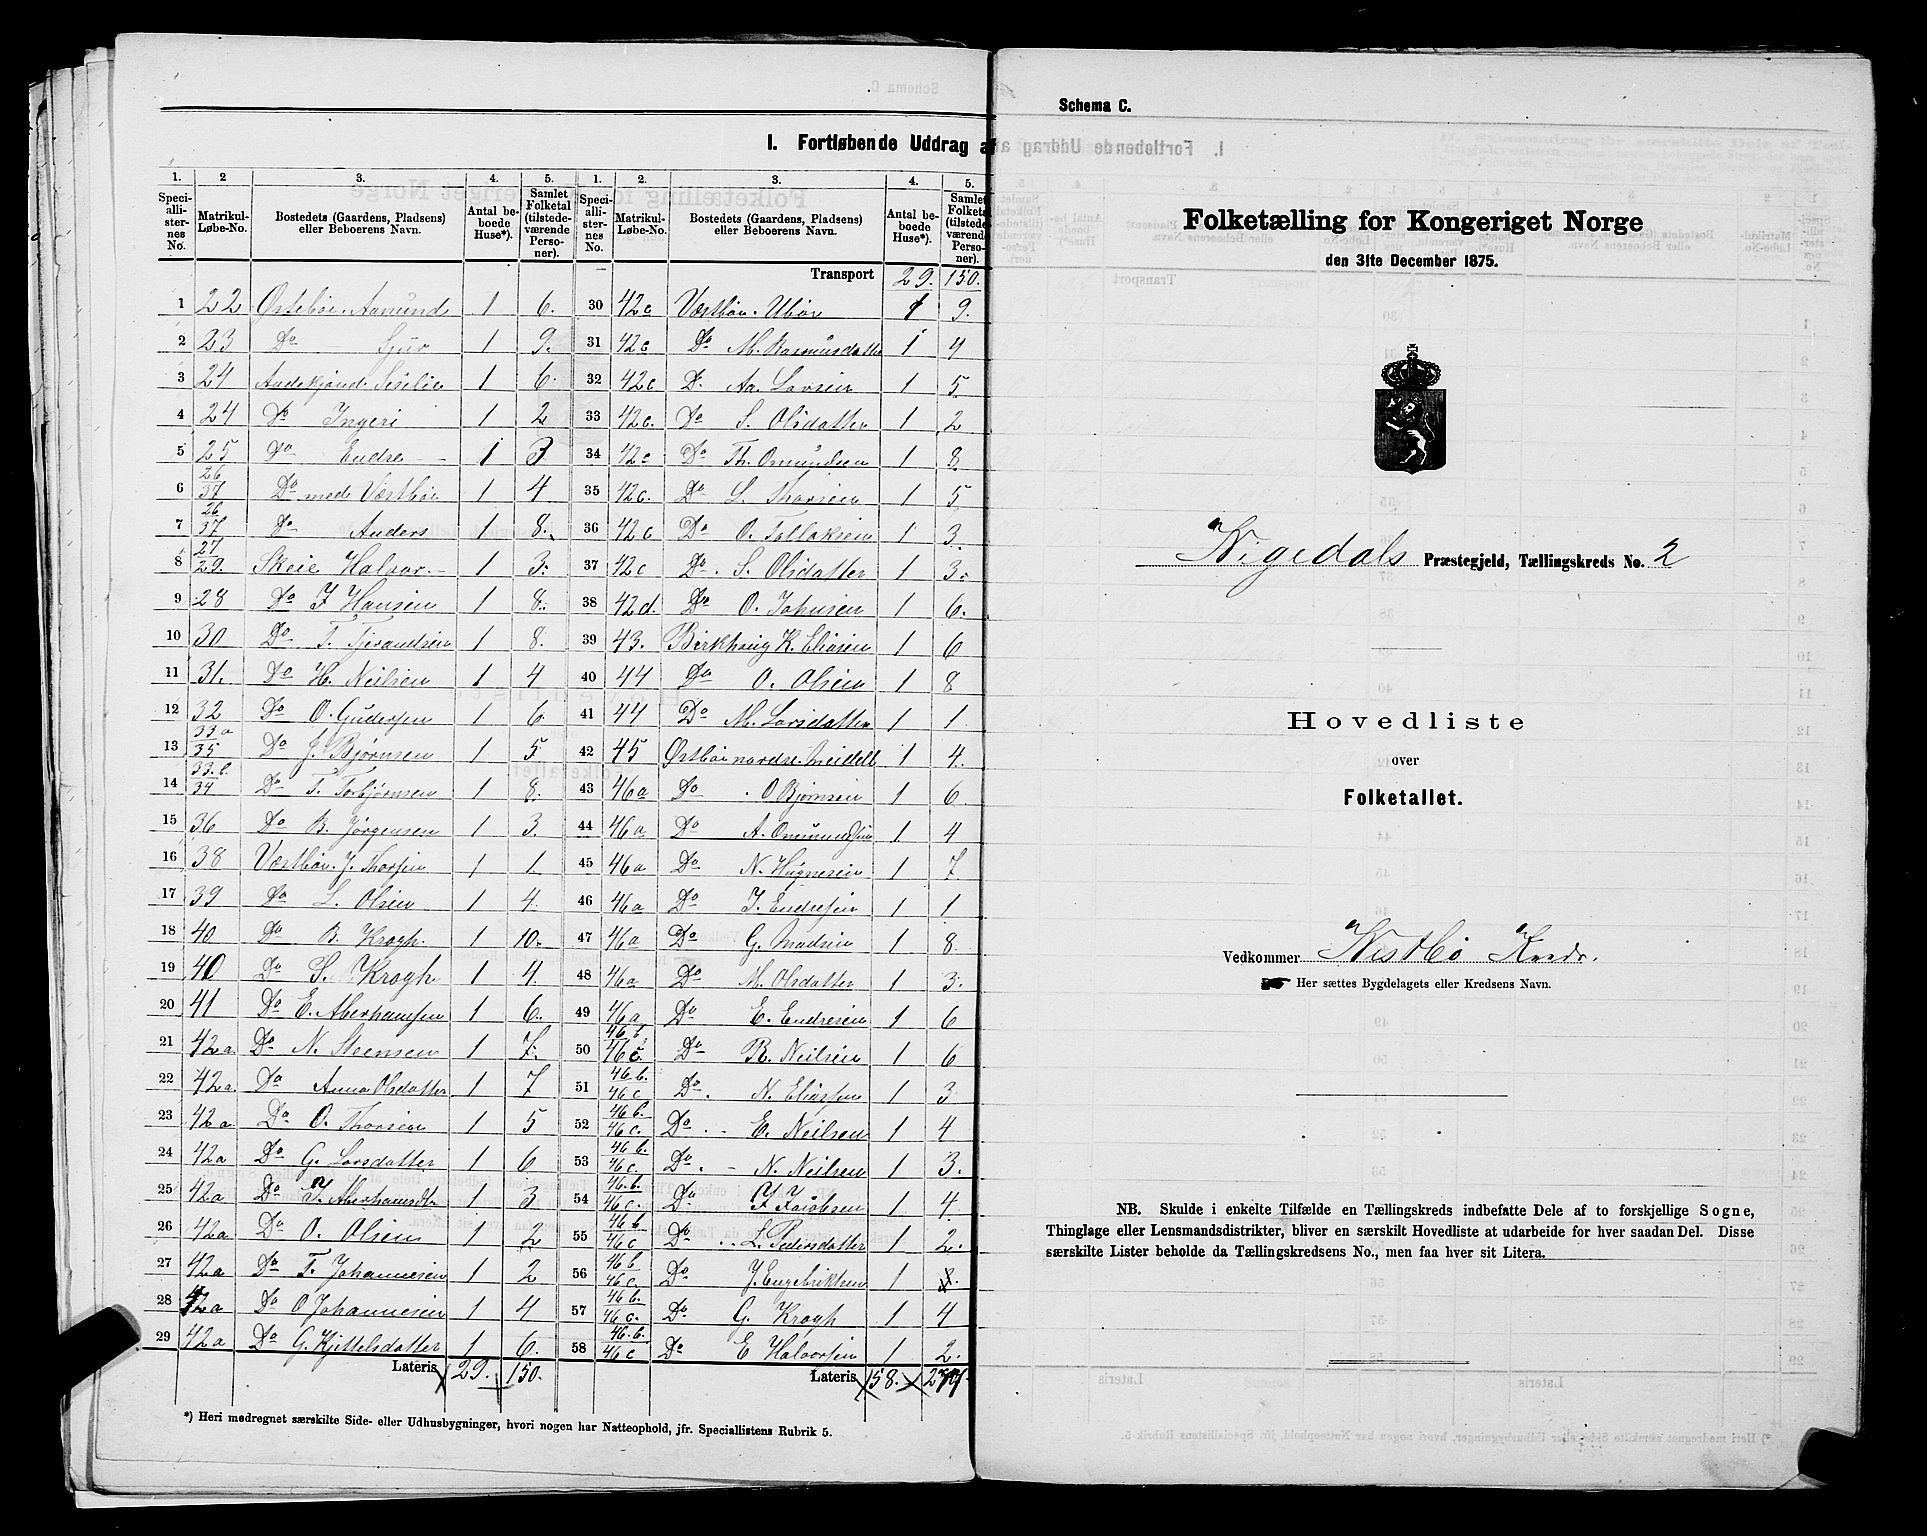 I. Fortløbende Uddrag af
1. 2 3. 4. 5. 1. 2. 3. 4. 5.
Speciallisternes No. Matrikul-Løbe-No. Bostedets (Gaardens, Pladsens) eller Beboerens Navn. Antal beboede Huse*). Samlet Folketal (tilstedeværende Personer). Speciallisternes No. Matrikul-Løbe-No. Bostedets (Gaardens, Pladsens) eller Beboerens Navn. Antal beboede Huse*). Samlet Folketal (tilstedeværende Personer).
Transport 29. 150.
1 22 Østebøe Aamund 1 6.
2 23 Do Sjur 1 9.
3 24 Siselie 1 6.
4 24 Do Ingeri 1 2
5 25 Do Endre 1 3
6 26/37 Do med Væstbøe 1 4
7 26/37 Do Anders 1 8.
8 27/29. Skeie Halvor 1 3.
9 28 Do J Hansen 1 8.
10 30 Do. T. Tjerandsen 1 8.
11 31. Do H. Neilsen 1 4
12 32 Do O. Gudersen 1 6.
13 33a/35 Do J. Bjørnsen 1 5
14 33.b./34 Do T. Torbjørnsen 1 8.
15 36 Do B. Jørgensen 1 3.
16 38 Væstbøe J. Thorsen 1 1.
17 39 Do L. Olsen 1 4.
18 40 Do B. Krogh. 1 10.
19 40 Do S. Krogh 1 4.
20 41 Do E. Aberhamsen 1 6.
21 42a Do N. Steensen 1 7.
22 42a Do Anna Olsdatter 1 7
23 42a Do O. Thorsen 1 5
24 42a Do G. Larsdatter 1 6
25 42a Do T. Aberhamsdtr 1 3
26 42a Do O. Olsen 1 2
27 42a Do T. Johannesen 1 2
28 42a Do O Johannesen 1 4
29 42a Do G. Kjettelsdatter 1 6.
Lateris 29. 150.
30 42c Væstbøe. 1 9.
31 42c Do M. Rasmusdatter 1 4
32 42c D. Aa. Larsen 1 5
33 42c. Do S. Olsdatter 1 2
34 42c Do Th. Omundsen 1 8.
35 42c. Do L. Thorsen 1 5
36 42c Do O. Tollaksen 1 3.
37 42c Do. S. Olsdatter 1 3.
38 42d. Do O. Johnsen 1 6.
39 43. Birkhaug K. Eliasen 1 6
40 44 Do O. Olsen 1 8
41 44 Do M. Larsdatter 1 1
42 45 Østbøe nordre 1 4.
43 46a Do O Bjørnsen 1 6
44 46a Do A. Omundsen 1 4
45 46a Do N. Hognesen 1 7
46 46a Do J. Endresen 1 1
47 46a Do G. Madsen 1 8
48 46a Do M. Olsdatter 1 3.
49 46a Do E. Endresen 1 6
50 46b/46c Do R. Neilsen 1 6
51 46.b./46c Do. N. Eliassen 1 3
52 46b./46c. Do E. Neilsen 1 4
53 46b./46c. Do. N. Neilsen 1 3.
54 46.b./46c. Do J. Jacobsen 1 4
55 46b/46c Do L. Pedersdatter 1 2.
56 46b/46c. Do J. Engebrigtsen 1
57 46b./46c. Do G. Krogh 1 4
58 46.b./46c Do E Halvorsen 1 2.
Lateris 58.
*) Heri medregnet særskilte Side- eller Udhusbygninger, hvori nogen har Natteophold, jfr. Speciallistens Rubrik 5.
Schema C.
Folketælling for Kongeriget Norge
den 31te December 1875.
Nigedals Præstegjeld, Tællingskreds No. 2
Hovedliste
over
Folketallet.
Vedkommer Vestbø Kreds.
Her sættes Bygdelagets eller Kredsens Navn.
NB. Skulde i enkelte Tilfælde en Tællingskreds indbefatte Dele af to forskjellige Sogne,
Thinglage eller Lensmandsdistrikter, bliver en særskilt Hovedliste at udarbeide for hver saadan Del. Disse
særskilte Lister beholde da Tællingskredsens No., men faa hver sit Litera.